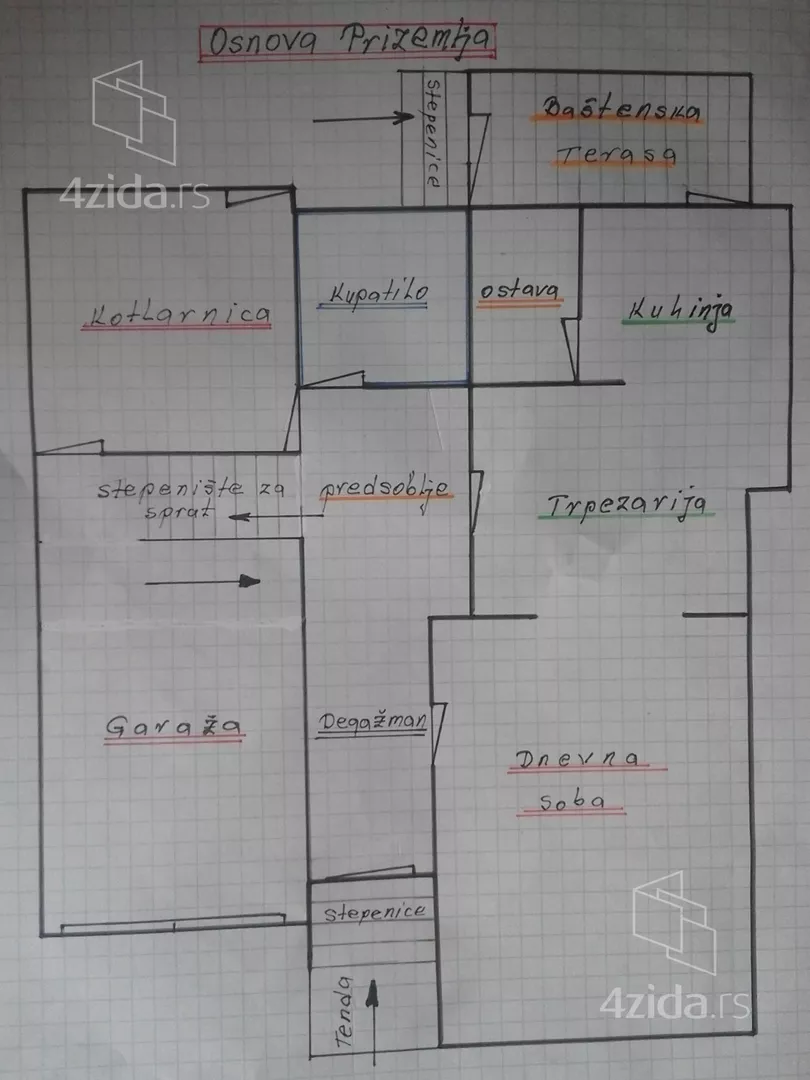 Osnova Prizemlja
Stepenice
Baštenska
Terasa
4zida.rs
Kotlarnica
Kupatilo
ostava
Kuhinja
stepenište za
sprat
predsoblje
Trpezarija
Garaža
Degažman
Dnevna
soba
Stepenice
Tenda
4zida.rs